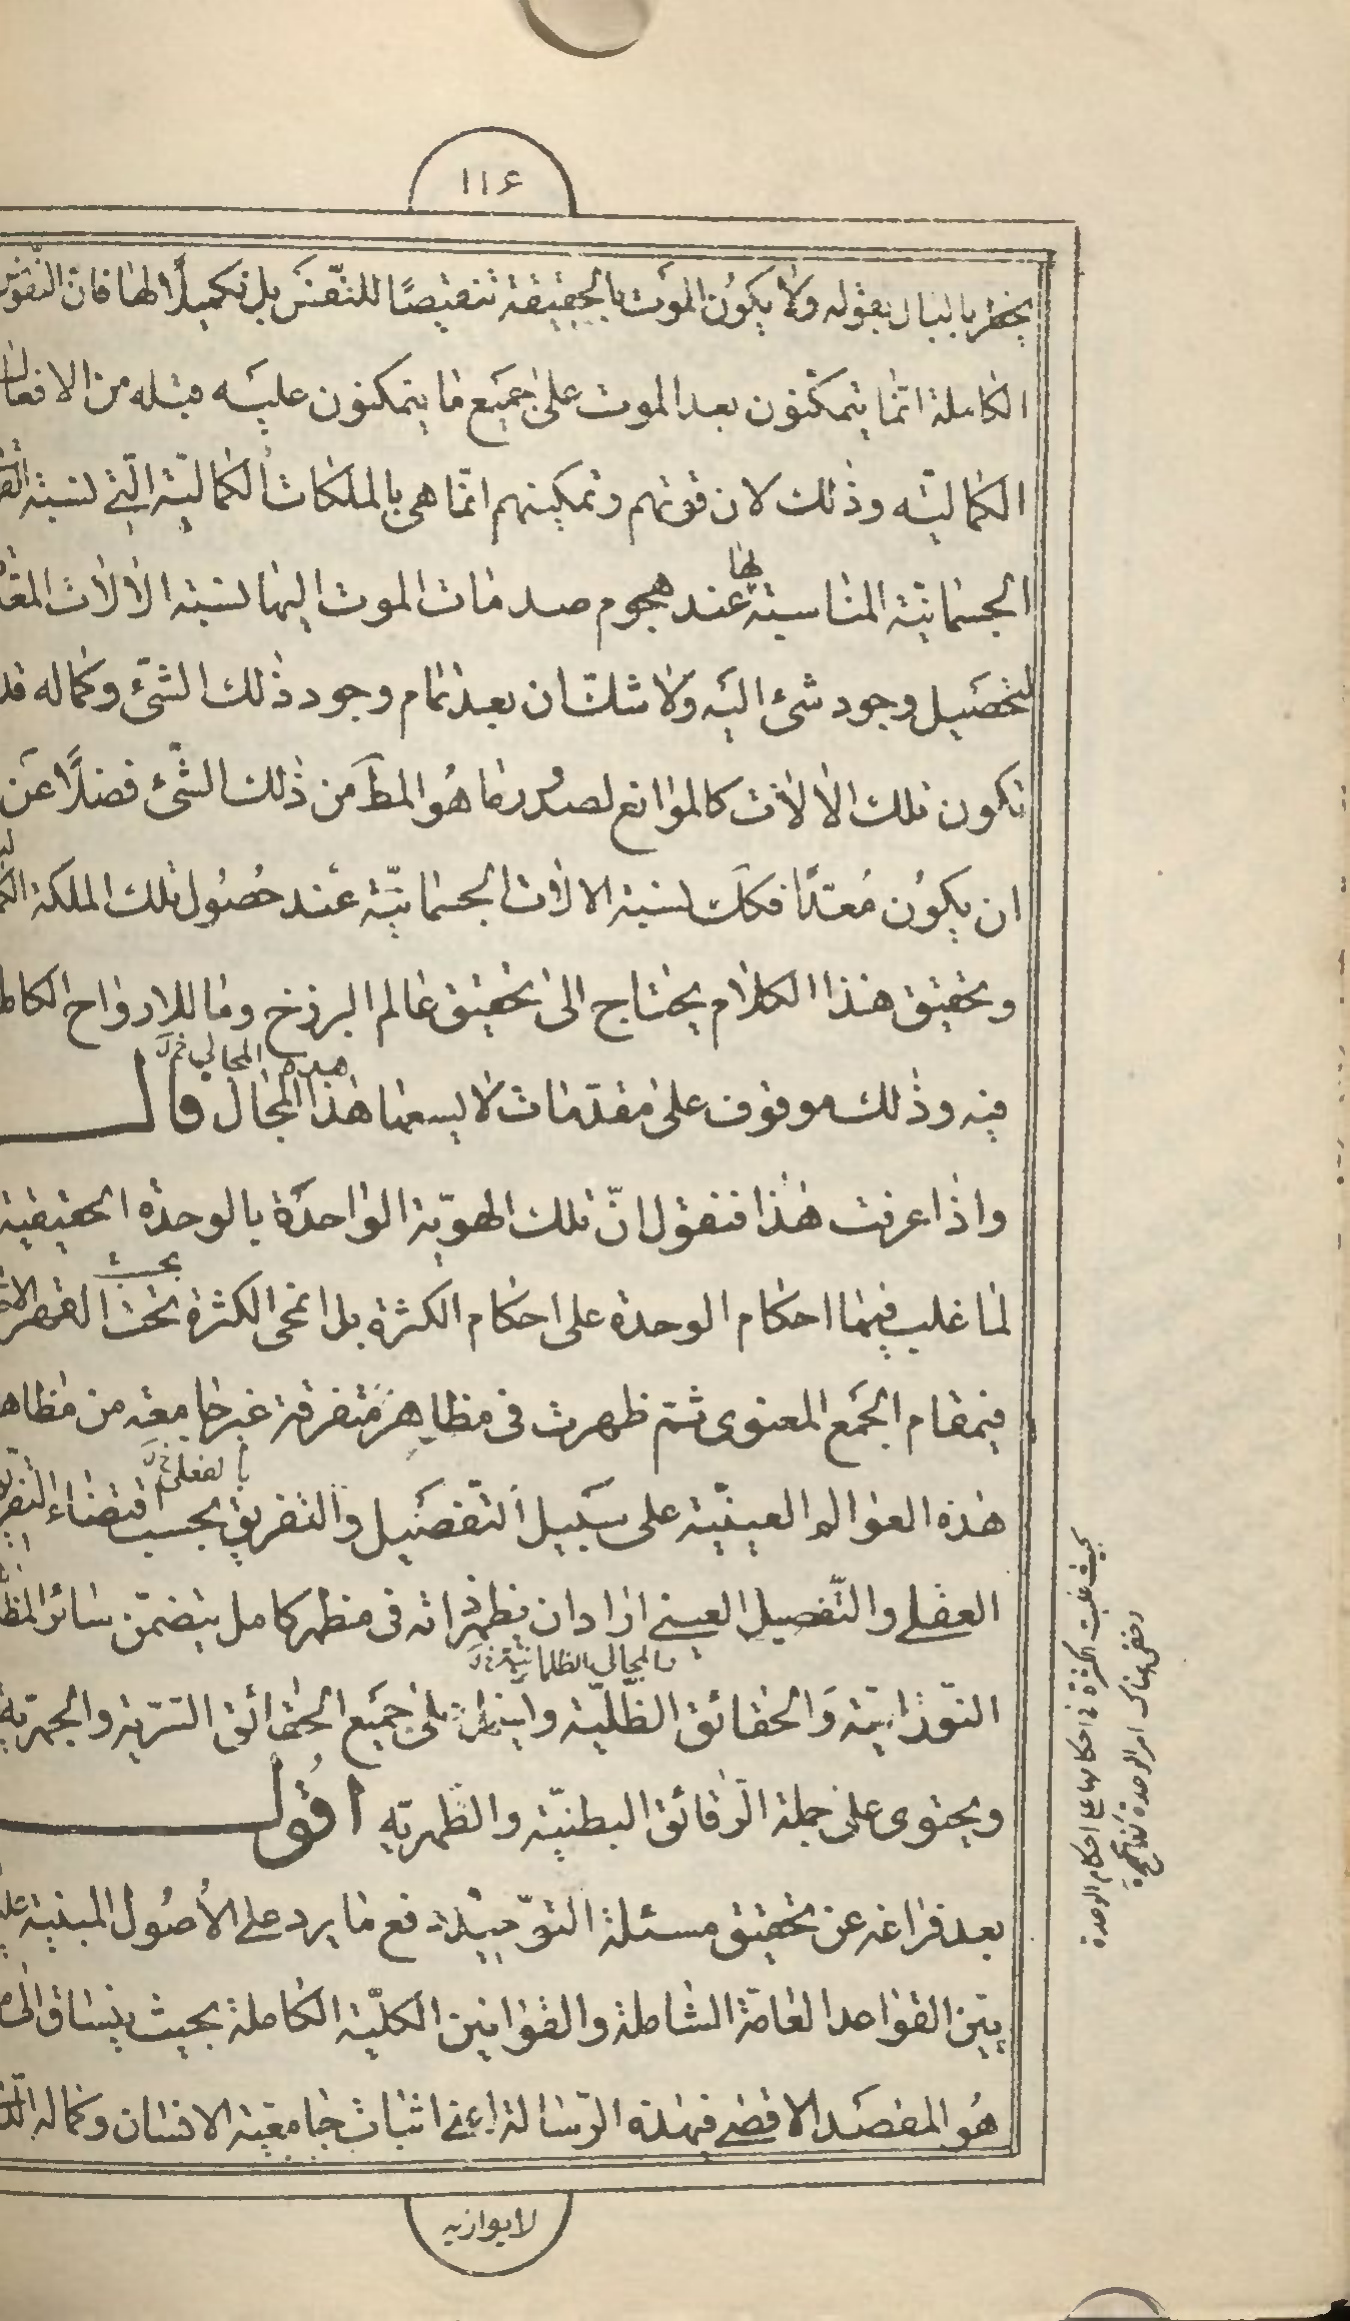 ۱۱۶
يخطر بالبال بقوله ولا يكون الموت بالحقيقة تنقيصًا للنّفس بل تكميلًا لها فان النّفوس
الكاملة انّما يتمكّنون بعد الموت على جميع ما يتمكنون عليه قبله من الافعال
الكماليّه وذلك لان قوتهم وتمكينهم انّما هى بالملكات الكماليّة الّتي نسبة
لها
الجسمانيّة المناسبة عند هجوم صدمات الموت اليها نسبة الالات
لتحصيل وجود شئ اليه ولا شكّ ان بعد تمام وجود ذلك الشّئ وكماله قد
تكون تلك الالات كالموانع لصدور ما هُو المط من ذلك الشّئ فضلًا عن
ان يكون مُعدًّا فكك نسبة الالات الجسمانيّة عند حصُول تلك الملكة
وتحقيق هذا الكلام يحتاج الى تحقيق عالم البرزخ وما للارواح
هذه المجالى خ ل
فيه وذلك موقوف على مقدّمات لا يسعها هذا المجال قال
واذا عرفت هذا فنقول انّ تلك الهويّة الواحدة بالوحدة الحقيقية
بحسب
لما غلب فيها احكام الوحدة على احكام الكثرة بل انمحى الكثرة تحت القهر
فيمقام الجمع المعنوى ثم ظهرت فى مظاهر متفرقة غير جامعة من
بالفعلى خ ل
هذه العوالم العينيّة على سبيل التّفصيل والتفريق بحسب اقتضاء
العقلي والتّفصيل العيني اراد ان يظهر ذاته فى مظهر كامل يتضمّن سائر
بالمجالى الظلمانيّة خ ل
النّورانيّة والحقائق الظّلّيّة وايضا على جميع الحقائق السّرّية والجهريّة
ويحتوى على جملة الرّقائق البطنيّة والظهريّه اقول
بعد فراغه عن تحقيق مسئلة التوحيد ودفع ما يرد على الاُصُول المبنية
بيّن القواعد العامّة الشاملة والقوانين الكلّيّة الكاملة بحيث ينساق الى
هُو المقصد الاقصى فيهذه الرّسالة اعني اثبات جامعية الانسان وكماله
لا يوازيه
بحيث غلبت الكثرة فى احكامها على احكام الوحدة
وخفى هناك امر الوحدة